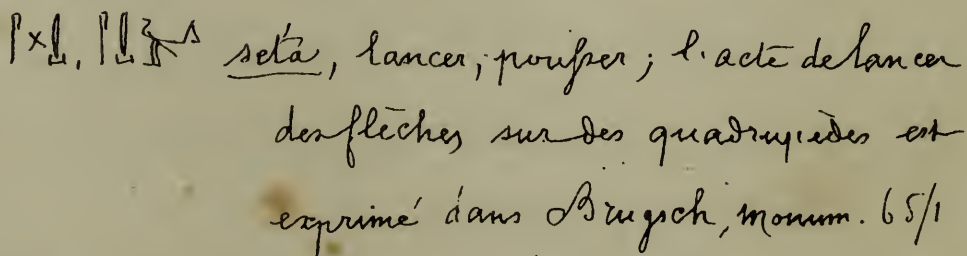 seta, lancer, pousser; l'acte de lancer
des flèches sur des quadrupèdes est
exprimé dans Brugsch, monum. 65/1